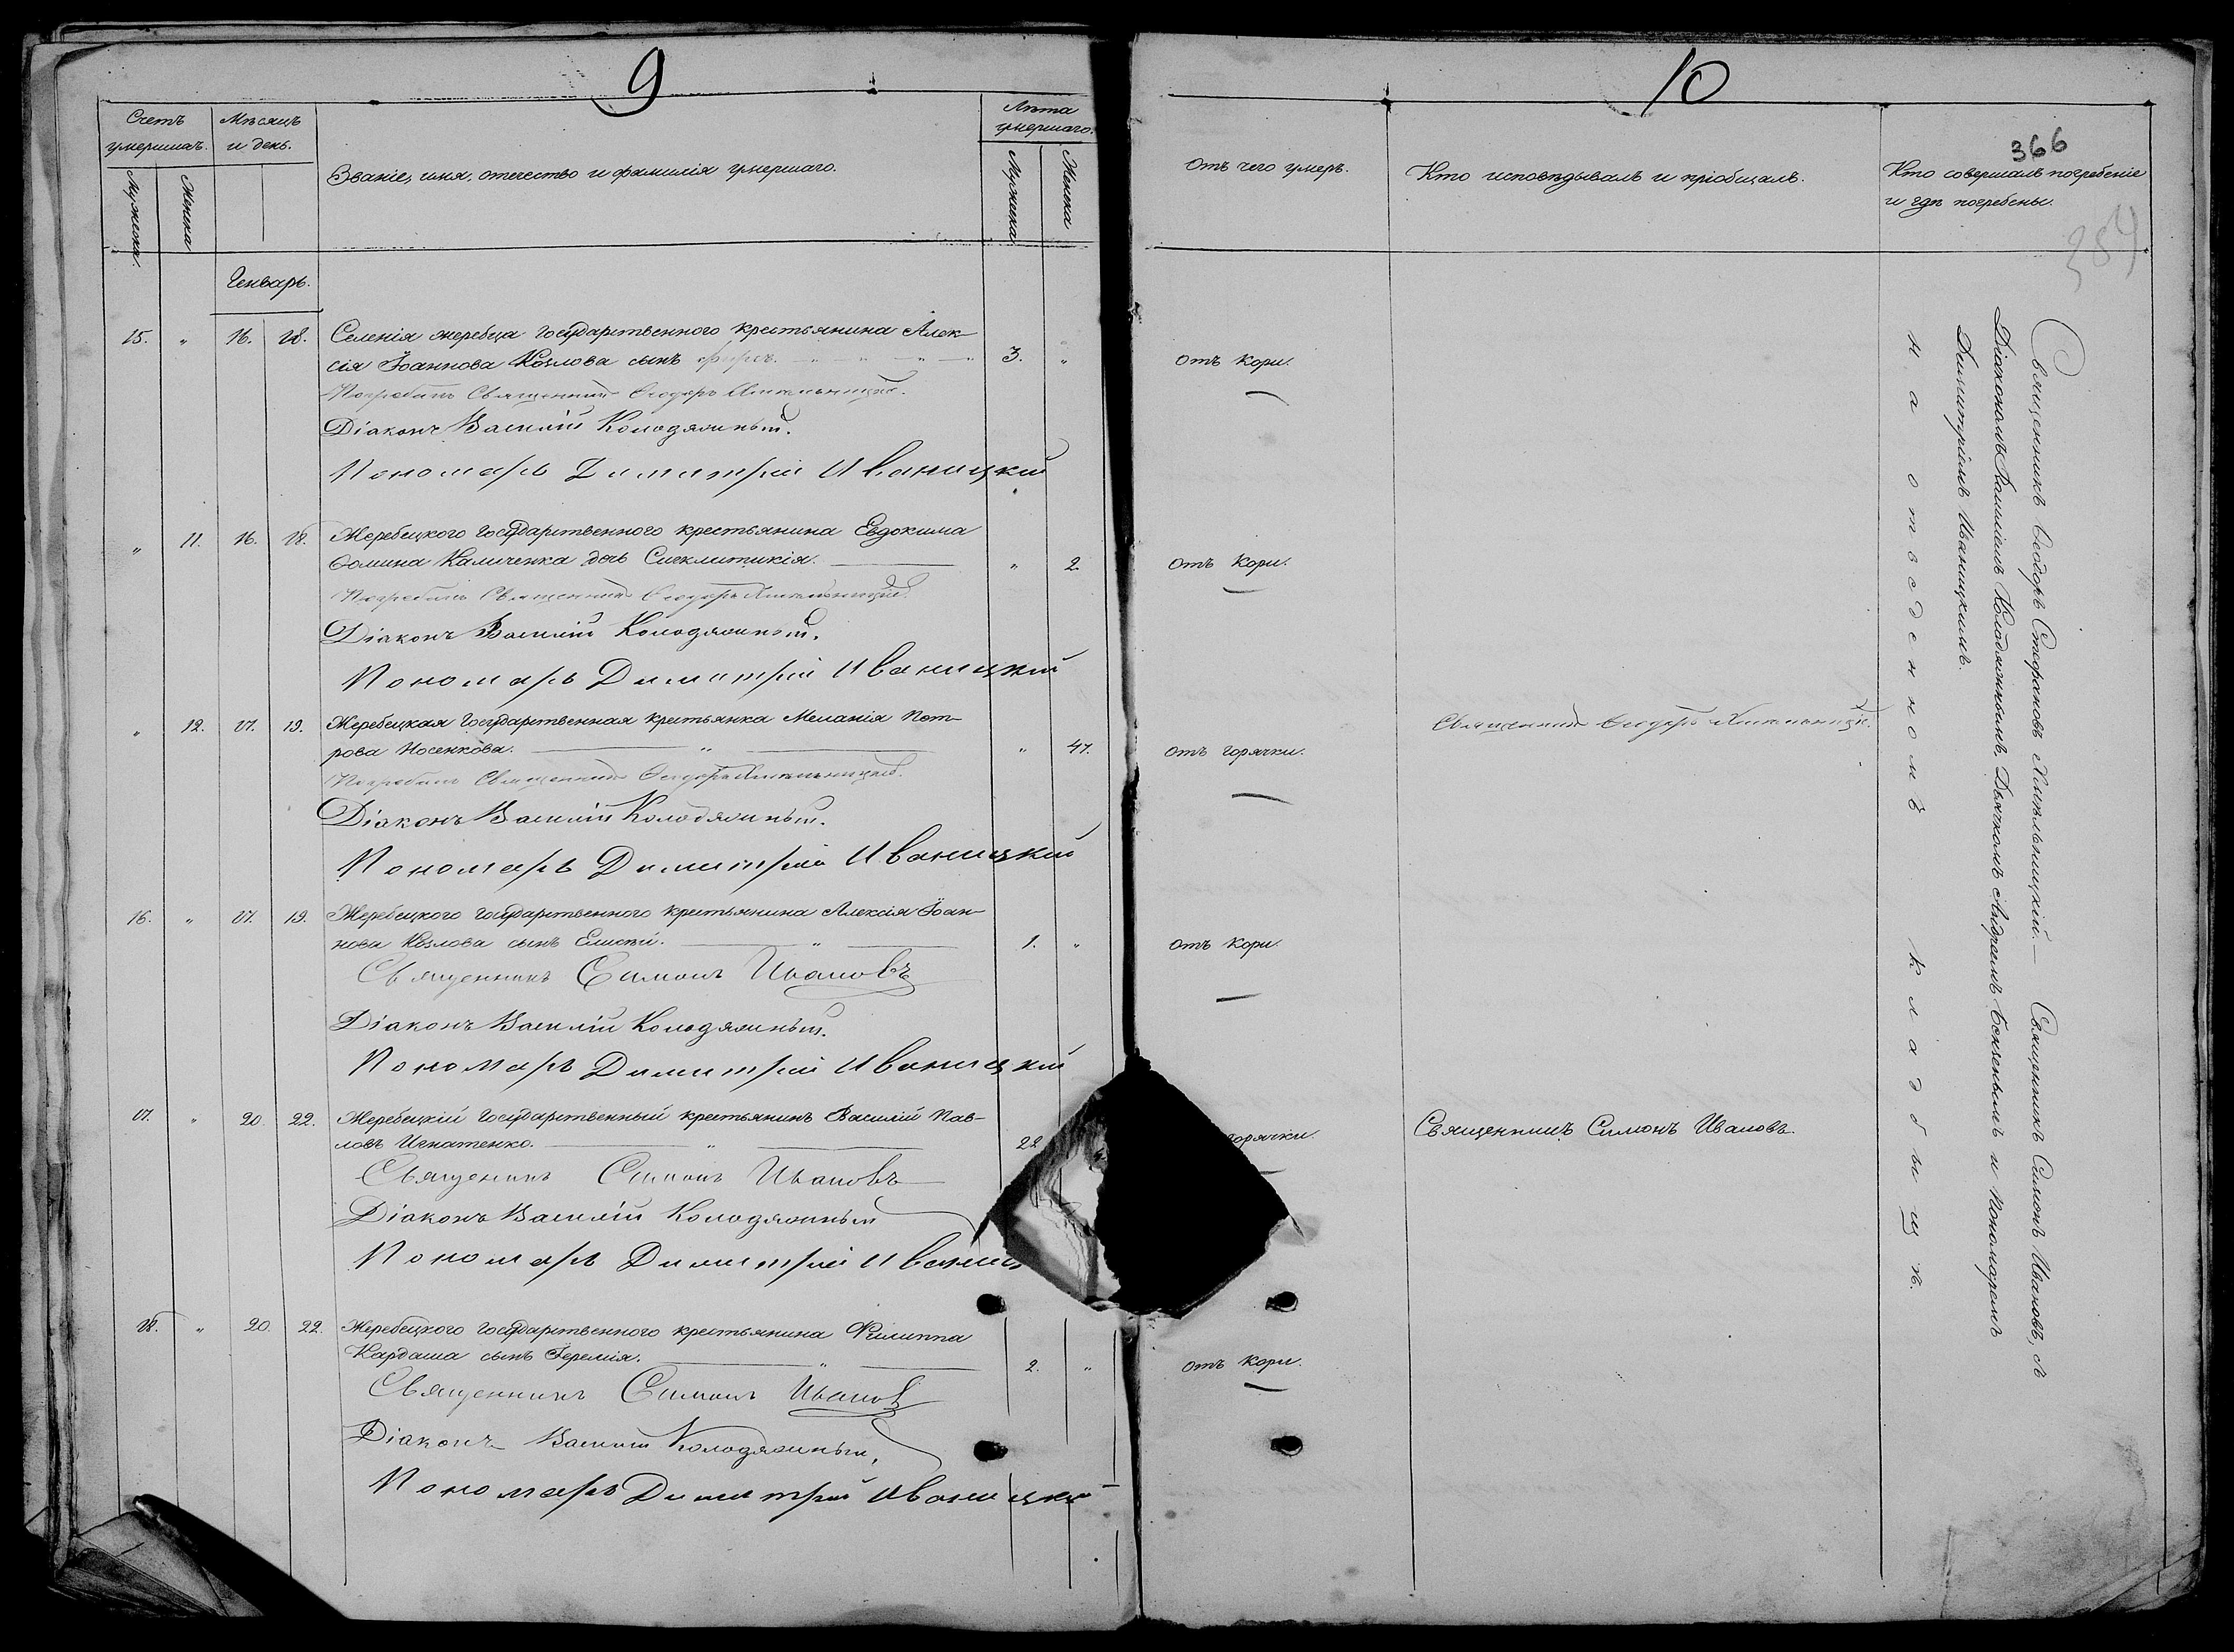 9
Счетъ умершихъ.
Мѣсяцъ и день.
Званіе, имя, отечество и фамилія умершаго.
Лѣта умершаго.
Мужеска.
Женска
Мужеска
Женска
Генварь.
15. " 16. 18. Селенія жеребца Государственного крестьянина Алек-
сія Іоаннова Козлова сынъ 3. "
Погребалъ Священникъ Ѳеодоръ Хмѣльницкій.
Діаконъ Василій Колодяжный.
Пономарь Димитрій Иваницкій
" 11. 16. 18. Жеребецкого Государственного крестьянина Евдокима
Ѳомина Каличенка дочь Сигклитикія. " 2.
Погребалъ Священникъ Ѳеодоръ Хмѣльницкій.
Діаконъ Василій Колодяжный.
Пономарь Димитрій Иваницкій
" 12. 17. 19. Жеребецкая Государственная крестьянка Меланія Пет-
рова Носенкова. " " 47.
Погребалъ Священникъ Ѳеодоръ Хмѣльницкій.
Діаконъ Василій Колодяжный.
Пономарь Димитрій Иваницкій
16. " 17. 19. Жеребецкого Государственного крестьянина Алексія Іоан-
нова Козлова сынъ Елисѣй. " 1. "
Священникъ Симонъ Ивановъ
Діаконъ Василій Колодяжный.
Пономарь Димитрій Иваницкій
17. " 20. 22. Жеребецкій Государственный крестьянинъ Василій Пав-
ловъ Игнатенко. " 22
Священникъ Симонъ Ивановъ
Діаконъ Василій Колодяжный
Пономарь Димитрій Иваниц
18. " 20. 22. Жеребецкого Государственного крестьянина Филиппа
Кардаша сынъ Іеремія. " 2. "
Священникъ Симонъ Ивановъ
Діаконъ Василій Колодяжный,
Пономарь Димитрій Иваницкій
10
366
384
Отъ чего умеръ.
Кто исповѣдывалъ и пріобщалъ.
Кто совершалъ погребеніе
и гдѣ погребены.
Отъ кори.
Отъ кори.
Отъ горячки.
Священникъ Ѳеодоръ Хмѣльницкій.
Отъ кори.
горячки.
Священникъ Симонъ Ивановъ.
Отъ кори.
Священникъ Ѳеодоръ Стефановъ Хмѣльницкій. — Священникъ Симонъ Ивановъ, съ
Діакономъ Василіемъ Колодяжнымъ, Дьячкомъ Андреемъ и Пономаремъ
Димитріемъ Иваницкимъ.
на отведенномъ кладбищѣ.